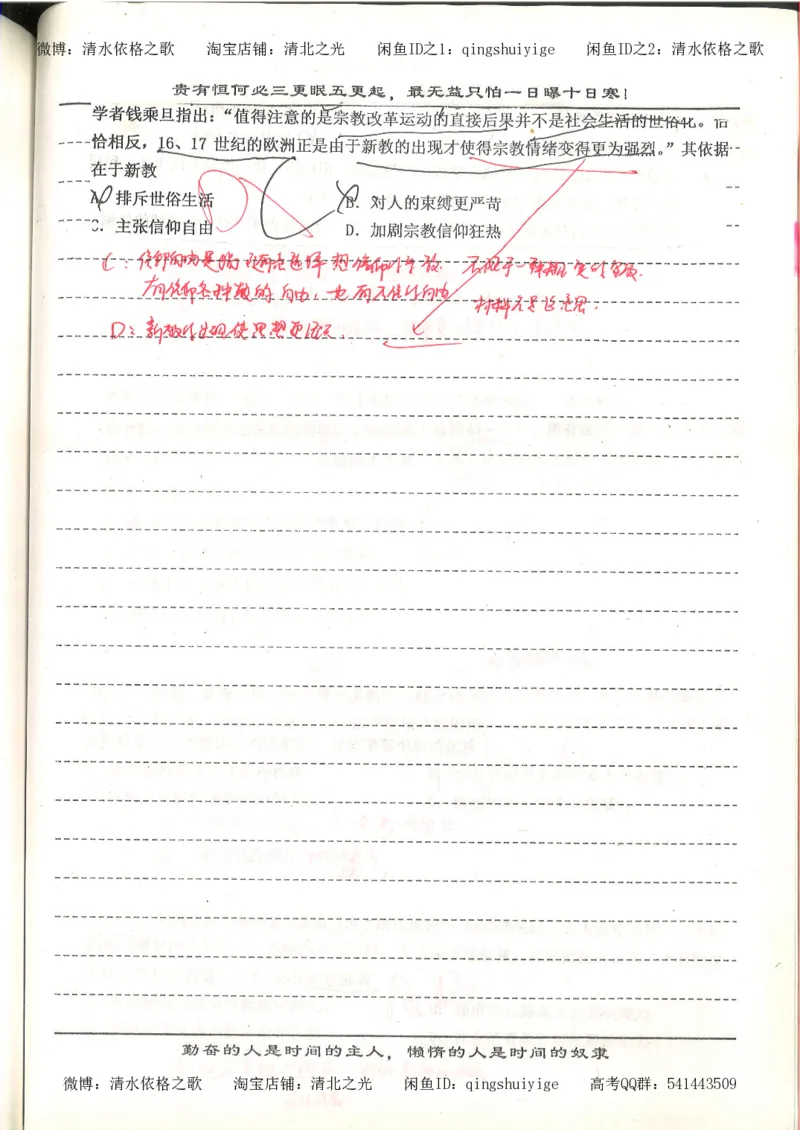 微博：清水依格之歌 淘宝店铺：清北之光 闲鱼ID之1：qingshuiyige 闲鱼ID之2：清水依格之歌
贵有恒何必三更眠五更起，最无益只怕一日曝十日寒！
学者钱乘旦指出：“值得注意的是宗教改革运动的直接后果并不是社会生活的世俗化。恰
恰相反，16、17 世纪的欧洲正是由于新教的出现才使得宗教情绪变得更为强烈。”其依据
在于新教
A．排斥世俗生活 B．对人的束缚更严苛
C．主张信仰自由 D．加剧宗教信仰狂热
C：信仰自由是指
有信仰各种教的自由，也有不信仰自由
D：新教的出现使思想更活跃．
勤奋的人是时间的主人，懒惰的人是时间的奴隶
微博：清水依格之歌 淘宝店铺：清北之光 闲鱼ID：qingshuiyige 高考QQ群：541443509